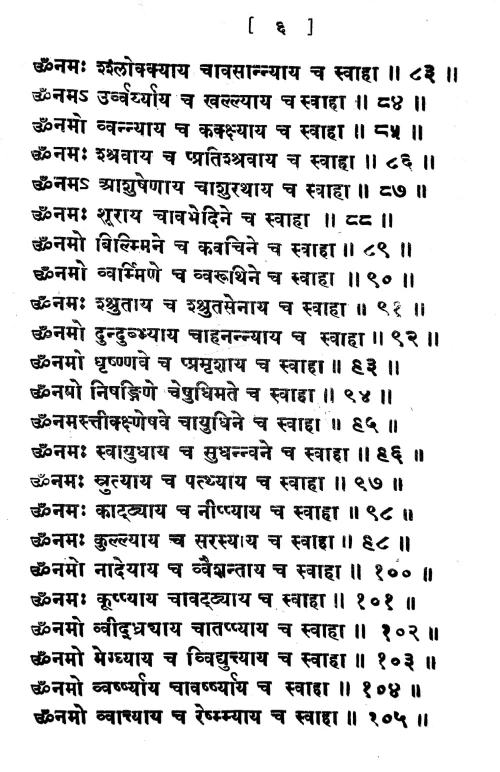 [ ६ ]
ॐनमः श्श्लोक्क्याय चावसान्न्याय च स्वाहा ॥ ८३ ॥
ॐनमऽ उर्व्वर्य्याय च खल्ल्याय च स्वाहा ॥ ८४ ॥
ॐनमो व्वन्न्याय च कक्क्ष्याय च स्वाहा ॥ ८५ ॥
ॐनमः श्श्रवाय च प्प्रतिश्श्रवाय च स्वाहा ॥ ८६ ॥
ॐनमऽ आशुषेणाय चाशुरथाय च स्वाहा ॥ ८७ ॥
ॐनमः शूराय चावभेदिने च स्वाहा ॥ ८८ ॥
ॐनमो बिल्म्मिने च कवचिने च स्वाहा ॥ ८९ ॥
ॐनमो व्वर्म्मिणे च व्वरूथिने च स्वाहा ॥ ९० ॥
ॐनमः श्श्रुताय च श्श्रुतसेनाय च स्वाहा ॥ ९१ ॥
ॐनमो दुन्दुब्भ्याय चाहनन्न्याय च स्वाहा ॥ ९२ ॥
ॐनमो धृष्ण्णवे च प्प्रमृशाय च स्वाहा ॥ ९३ ॥
ॐनषो निषङ्गिणे चेषुधिमते च स्वाहा ॥ ९४ ॥
ॐनमस्तीक्ष्णेषवे चायुधिने च स्वाहा ॥ ९५ ॥
ॐनमः स्वायुधाय च सुधन्न्वने च स्वाहा ॥ ९६ ॥
ॐनमः स्रुत्याय च पत्थ्याय च स्वाहा ॥ ९७ ॥
ॐनमः काट्ट्याय च नीप्प्याय च स्वाहा ॥ ९८ ॥
ॐनमः कुल्ल्याय च सरस्याय च स्वाहा ॥ ९८ ॥
ॐनमो नादेयाय च व्वैशन्ताय च स्वाहा ॥ १०० ॥
ॐनमः कूप्प्याय चावट्ट्याय च स्वाहा ॥ १०१ ॥
ॐनमो व्वीद्ध्रयाय चातप्प्याय च स्वाहा ॥ १०२ ॥
ॐनमो मेग्घ्याय च व्विद्युत्त्याय च स्वाहा ॥ १०३ ॥
ॐनमो व्वर्ष्ष्याय चावर्ष्ष्याय च स्वाहा ॥ १०४ ॥
ॐनमो व्वात्त्याय च रेष्म्म्याय च स्वाहा ॥ १०५ ॥